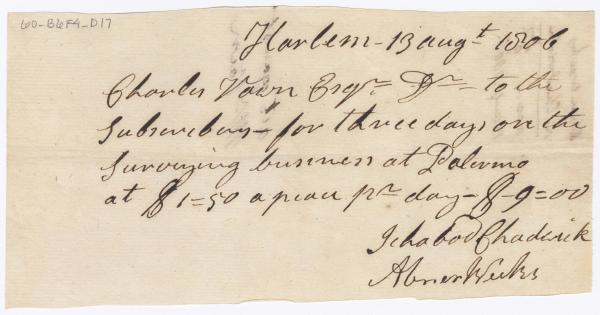 60-B6F4-D17
Harlem - 13 augt 1806
Charles Vaun Esqr. Dr - to the
Subscribers - for three days on the
Surveying business at Palermo
at $1=50 a peace pr day - $-9=00
Ichabod Chadwick
Abner Weeks